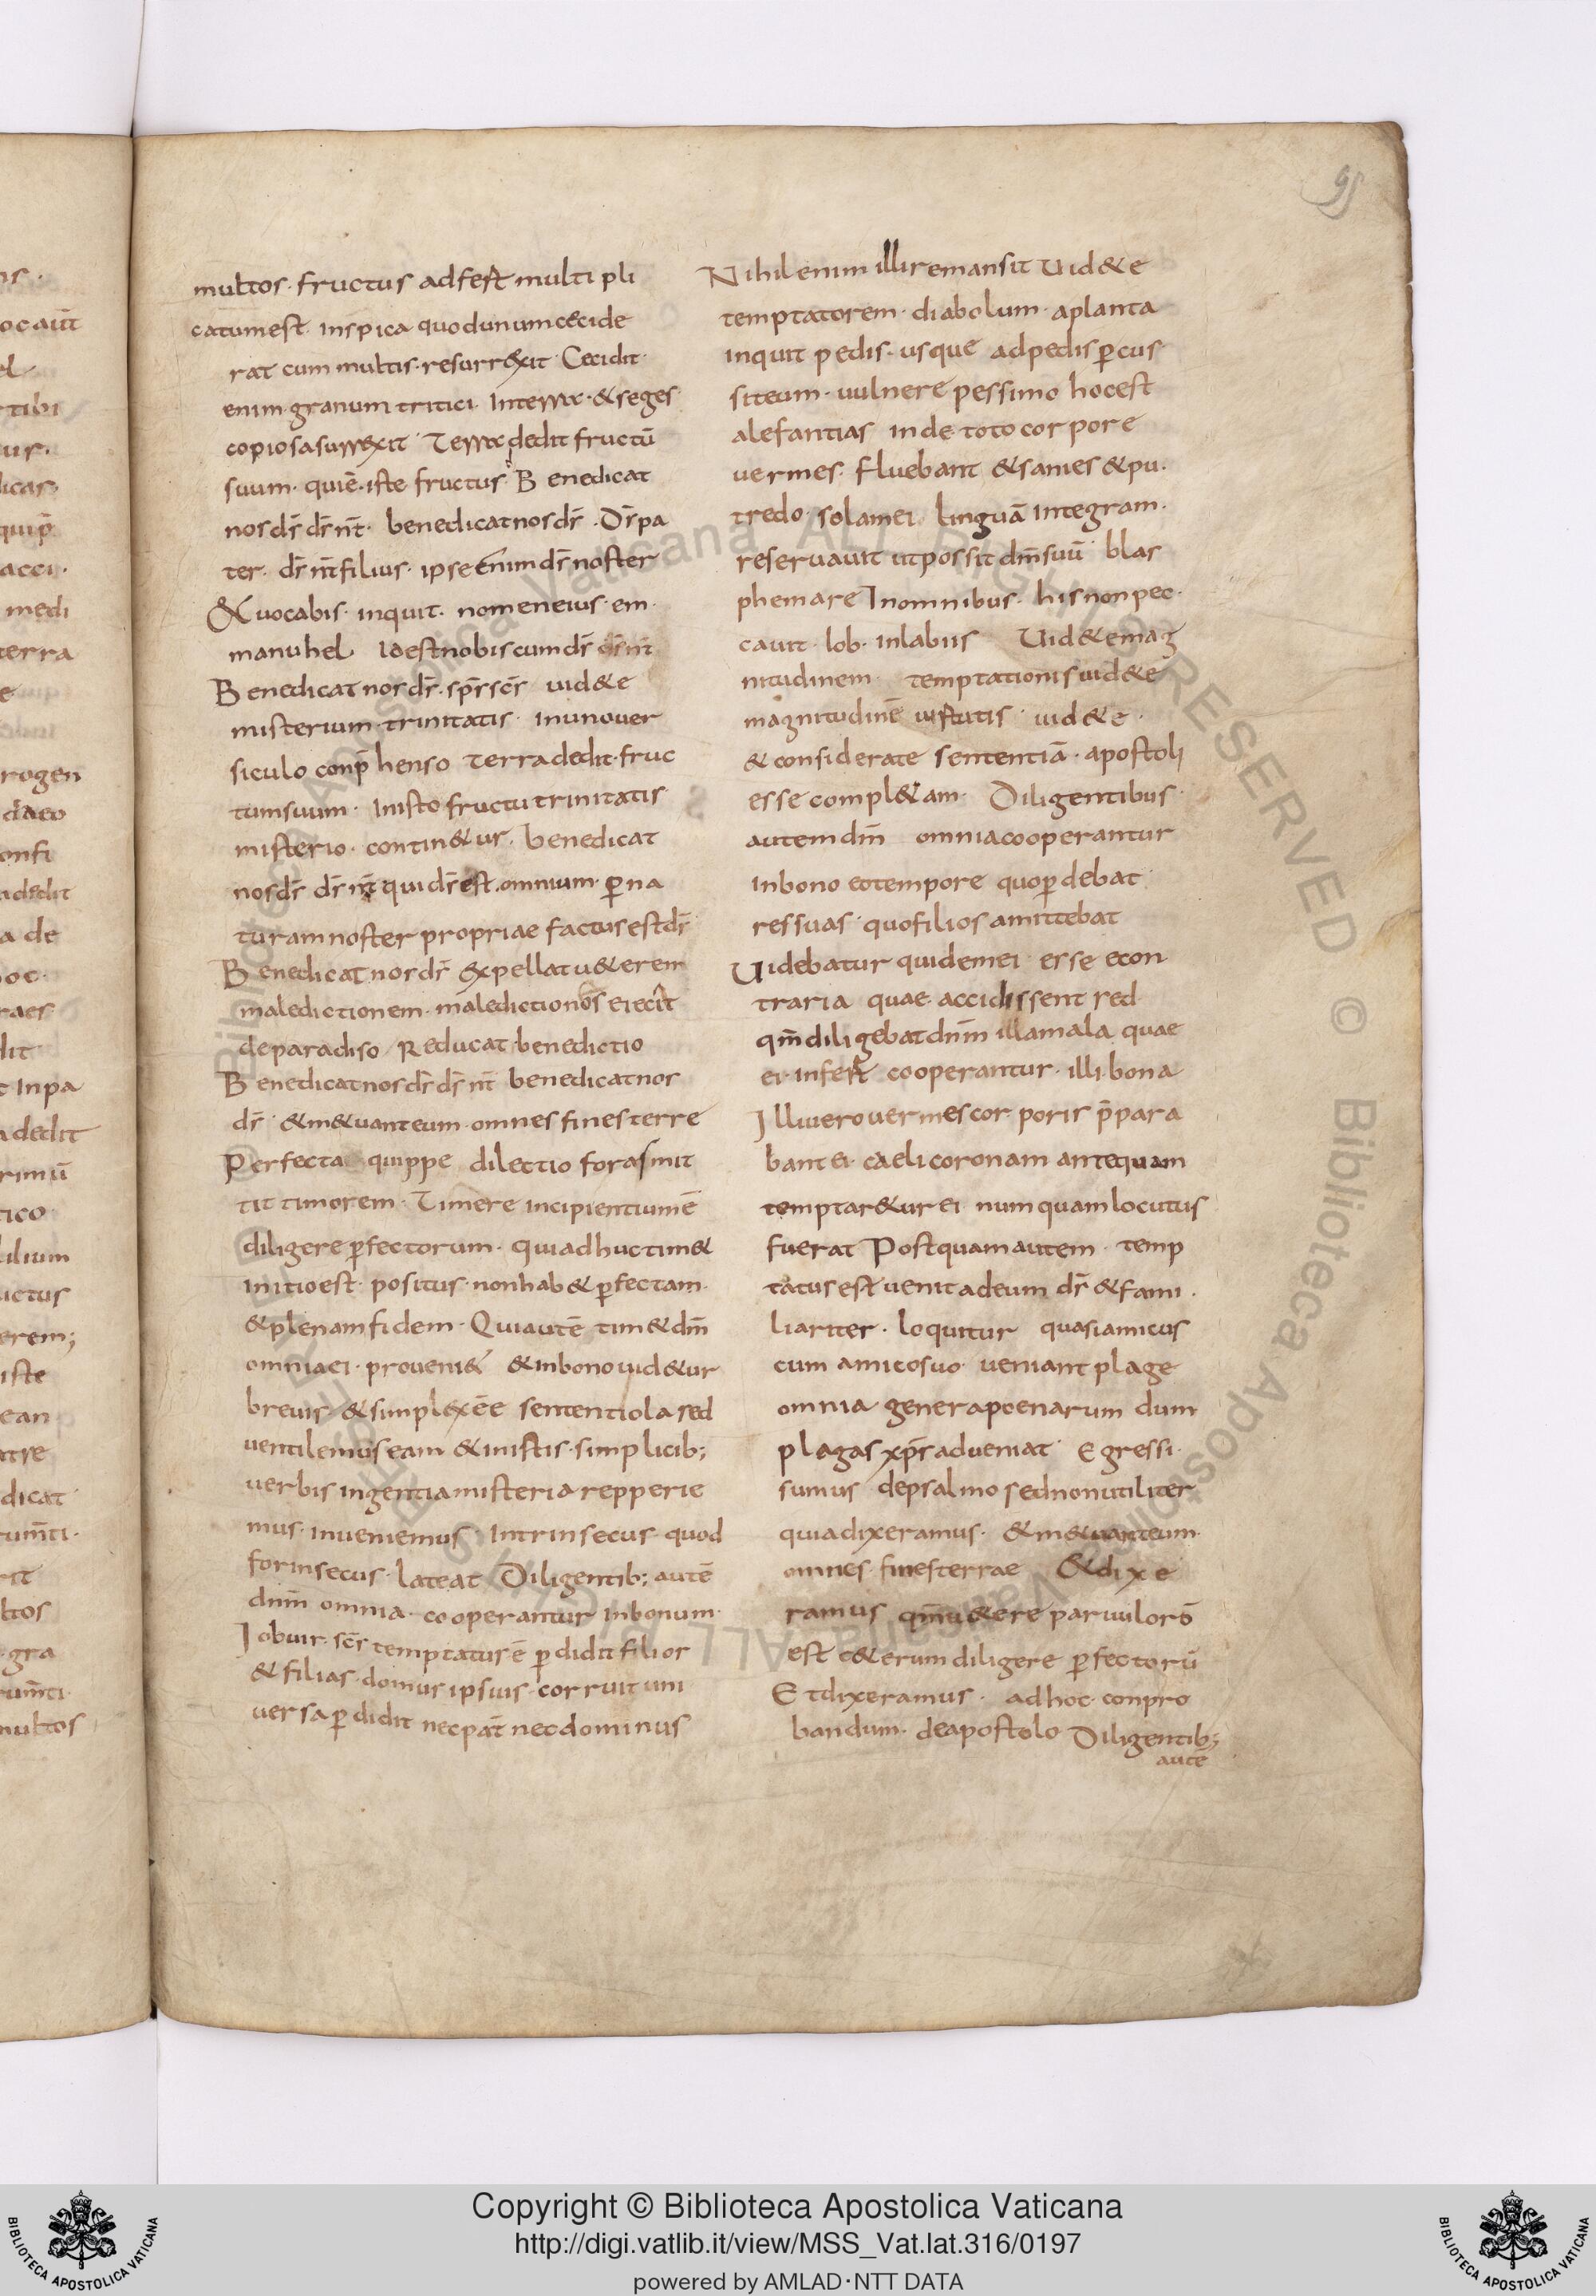 multos · fructus adfert multi pli
catum est inspica quod unum cecide
rat cum multis · resurrexit · Cecidit ·
enim · granum tritici · In terra · & seges
copiosa surrexit · Terra dedit fructū
suum · qui ē · iste fructus · Benedicat
nos dr̄ dr̄ nr̄t · benedicat nos dr̄ · Dr̄ pa
ter · dr̄ nr̄ filius · ipse enim dr̄ noster
& uocabis · inquit · nomen eius · em
manuhel Id est nobiscum dr̄
Benedicat nos dr̄ · spr̄ scr̄ uid&e
misterium · trinitatis · in uno uer
siculo conp̄henso Terra dedit · fruc
tum suum · In isto fructu trinitatis
misterio · contin&ur · benedicat
nos dr̄ dr̄ nr̄ qui dr̄ est · omnium · p̄ na
turam noster propriae factus est dr̄
Benedicat nos dr̄ expellat u&erem
maledictionem · maledictio nos eiecit
de paradiso / Reducat · benedictio
Benedicat nos dr̄ dr̄ nr̄ benedicat nos
dr̄ · & m&uant eum · omnes fines terre
Perfecta quippe dilectio foras mit
tit timorem · Timere incipientium ē
diligere p̄fectorum · Qui adhuc tim&
initio est · positus · non hab& p̄fectam ·
& plenam fidem · Qui autē tim& dm̄
omnia ei · proueni& & in bono uid&ur
breuis · & simplex ēe sententiola sed
uentilemus eam & in istis · simplicib;
uerbis ingentia misteria repperie
mus · inueniemus · Intrinsecus · quod
forinsecus · lateat Diligentib; autē
dnm̄ omnia · cooperantur in bonum ·
Iob uir · scr̄ temptatus ē p̄didit filios
& filias · domus ipsius · corruit uni
uersa p̄didit nec pat̄ nec dominus
Nihil enim illi remansit Uid&e
temptatorem · diabolum · a planta
inquit pedis · usque ad pedis p̄cus
sit eum · uulnere pessimo hoc est
alefantias inde toto corpore
uermes · fluebant & sanies & pu ·
tredo · solam ei linguā integram ·
reseruauit ut possit dm̄ suū blas
phemare In omnibus · his non pec ·
cauit · Iob · in labiis Uid&e mag
nitudinem temptationis uid&e
magnitudinē uirtutis uid&e ·
& considerate sententiā · apostoli
esse compl&am · Diligentibus ·
autem dm̄ omnia cooperantur
in bono eo tempore quo p̄debat
res suas · quo filios amittebat
Uidebatur quidem ei · esse econ
traria quae · accidissent sed
qm̄ diligebat dnm̄ illa mala quae
ei · infert cooperantur · illi bona
Illi uero uermes corporis p̄para
bant ei · caeli coronam antequam
temptar&ur ei numquam locutus
fuerat Postquam autem · temp
tatus est uenit ad eum dr̄ & fami ·
liariter · loquitur quasi amicus
cum amico suo · ueniant plage
omnia genera poenarum dum
plagas xpr̄ adueniat · Egressi ·
sumus de psalmo sed non utiliter
quia dixeramus · & m&uant eum ·
omnes · fines terrae & dixe
ramus qm̄ u&ere paruulorō
est c&erum diligere p̄fectorū
Et dixeramus · ad hoc · conpro
bandum · de apostolo Diligentib;
autē
Copyright © Biblioteca Apostolica Vaticana
http://digi.vatlib.it/view/MSS_Vat.lat.316/0197
powered by AMLAD·NTT DATA